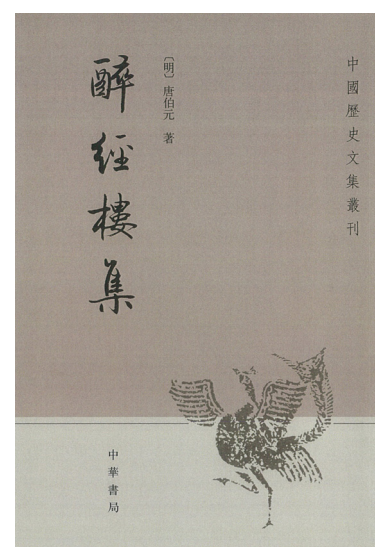 中國歷史文集叢刊
〔明〕唐伯元 著
醉經樓集
中華書局